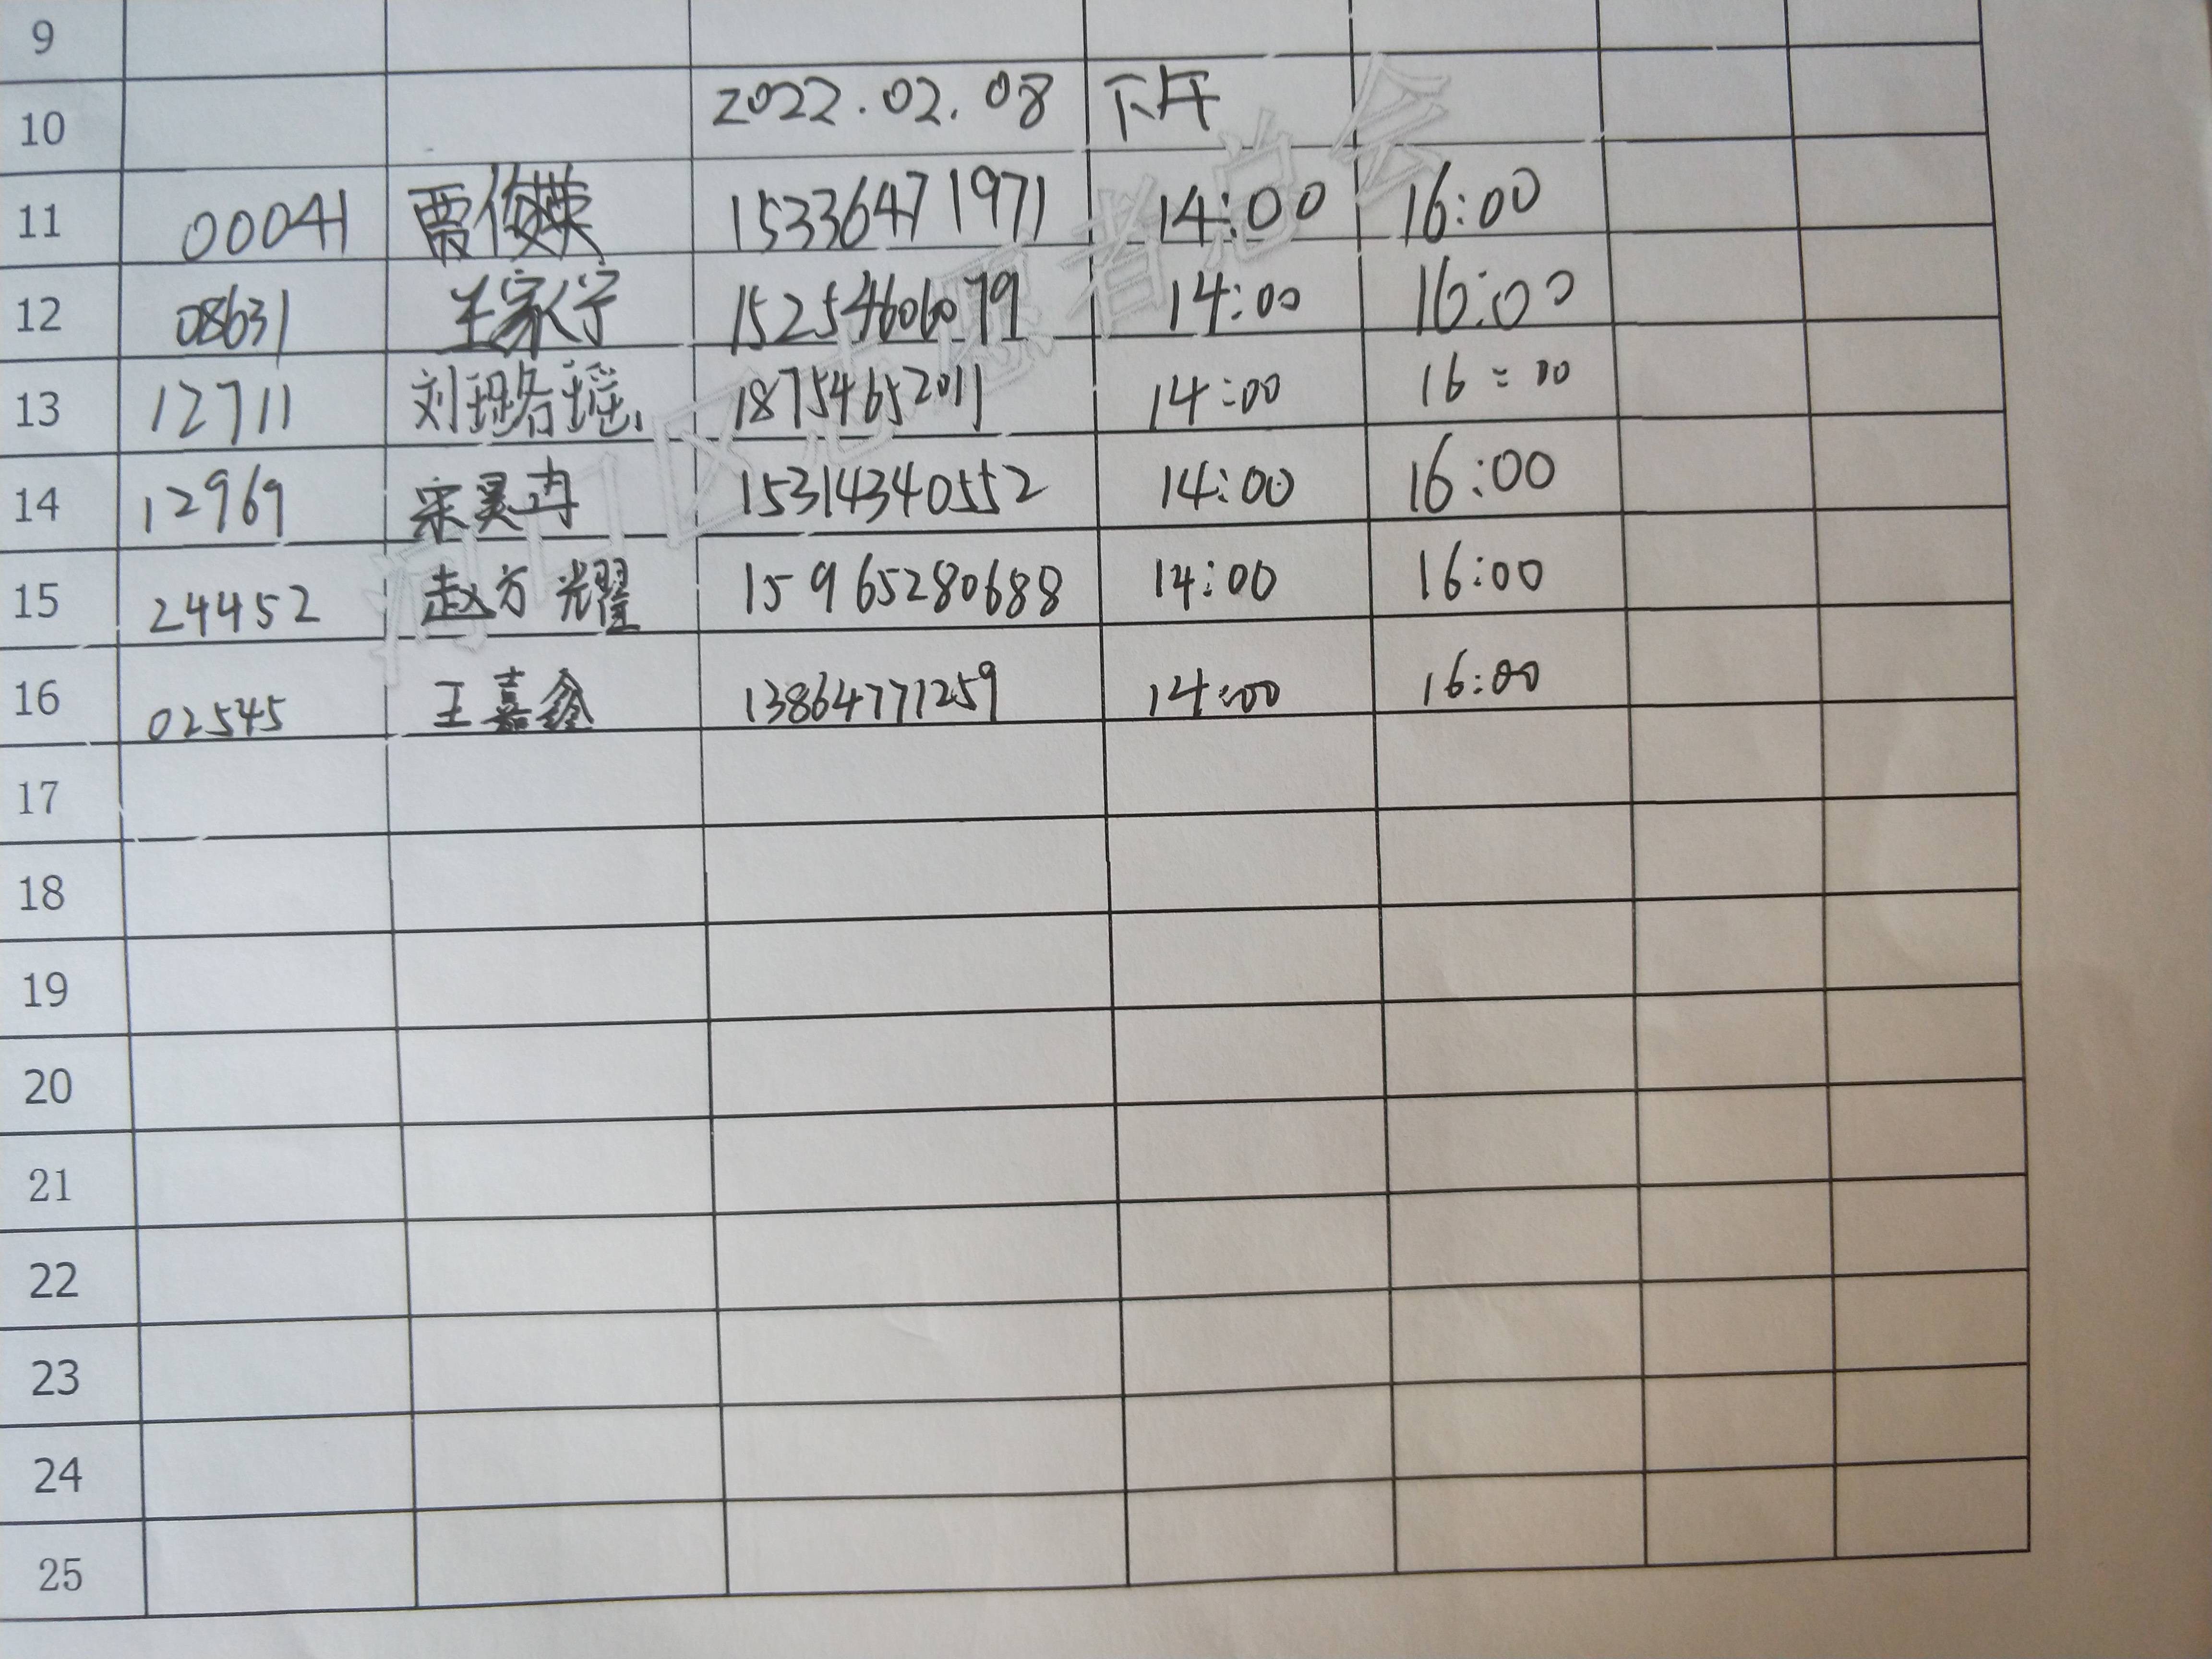 9
10 2022.02.08 下午
11 00041 贾俊英 15336471971 14:00 16:00
12 08631 王家宁 15254606079 14:00 16:00
13 12711 刘璐瑶 18754652011 14:00 16:00
14 12969 宋昊冉 15314340552 14:00 16:00
15 24452 赵方耀 15965280688 14:00 16:00
16 02545 王嘉鑫 13864771259 14:00 16:00
17
18
19
20
21
22
23
24
25
河口区志愿者总会